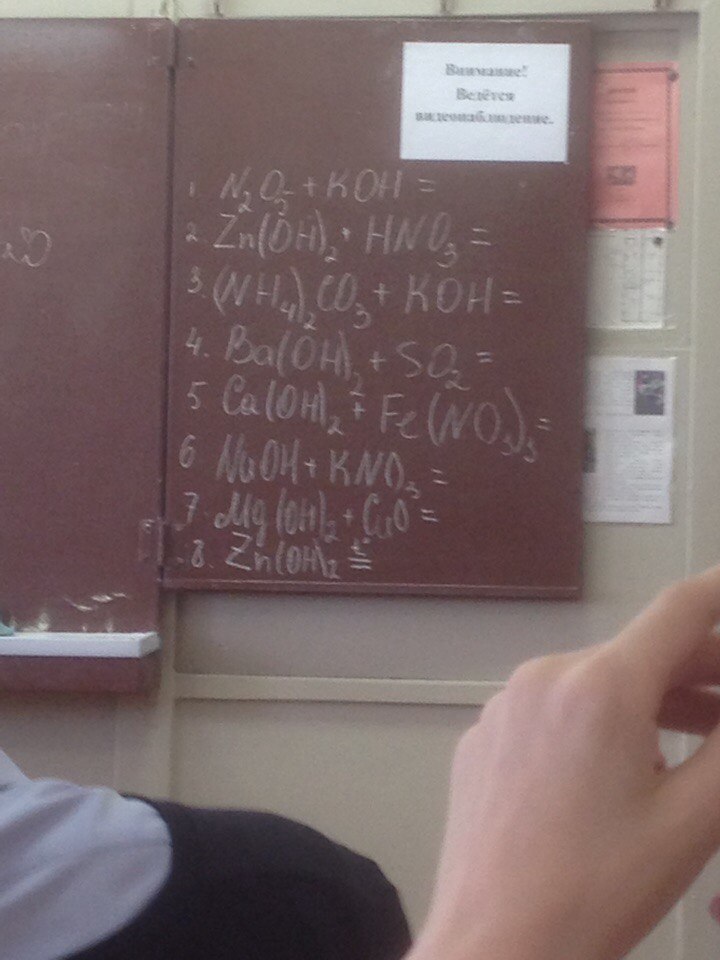 Внимание!
Ведётся
видеонаблюдение.
1. N₂O₅ + KOH =
2. Zn(OH)₂ + HNO₃ =
3. (NH₄)₂CO₃ + KOH =
4. Ba(OH)₂ + SO₂ =
5 Ca(OH)₂ + Fe(NO₃)₃ =
6 NaOH + KNO₃ =
7. Mg(OH)₂ + CuO =
8. Zn(OH)₂ t° =